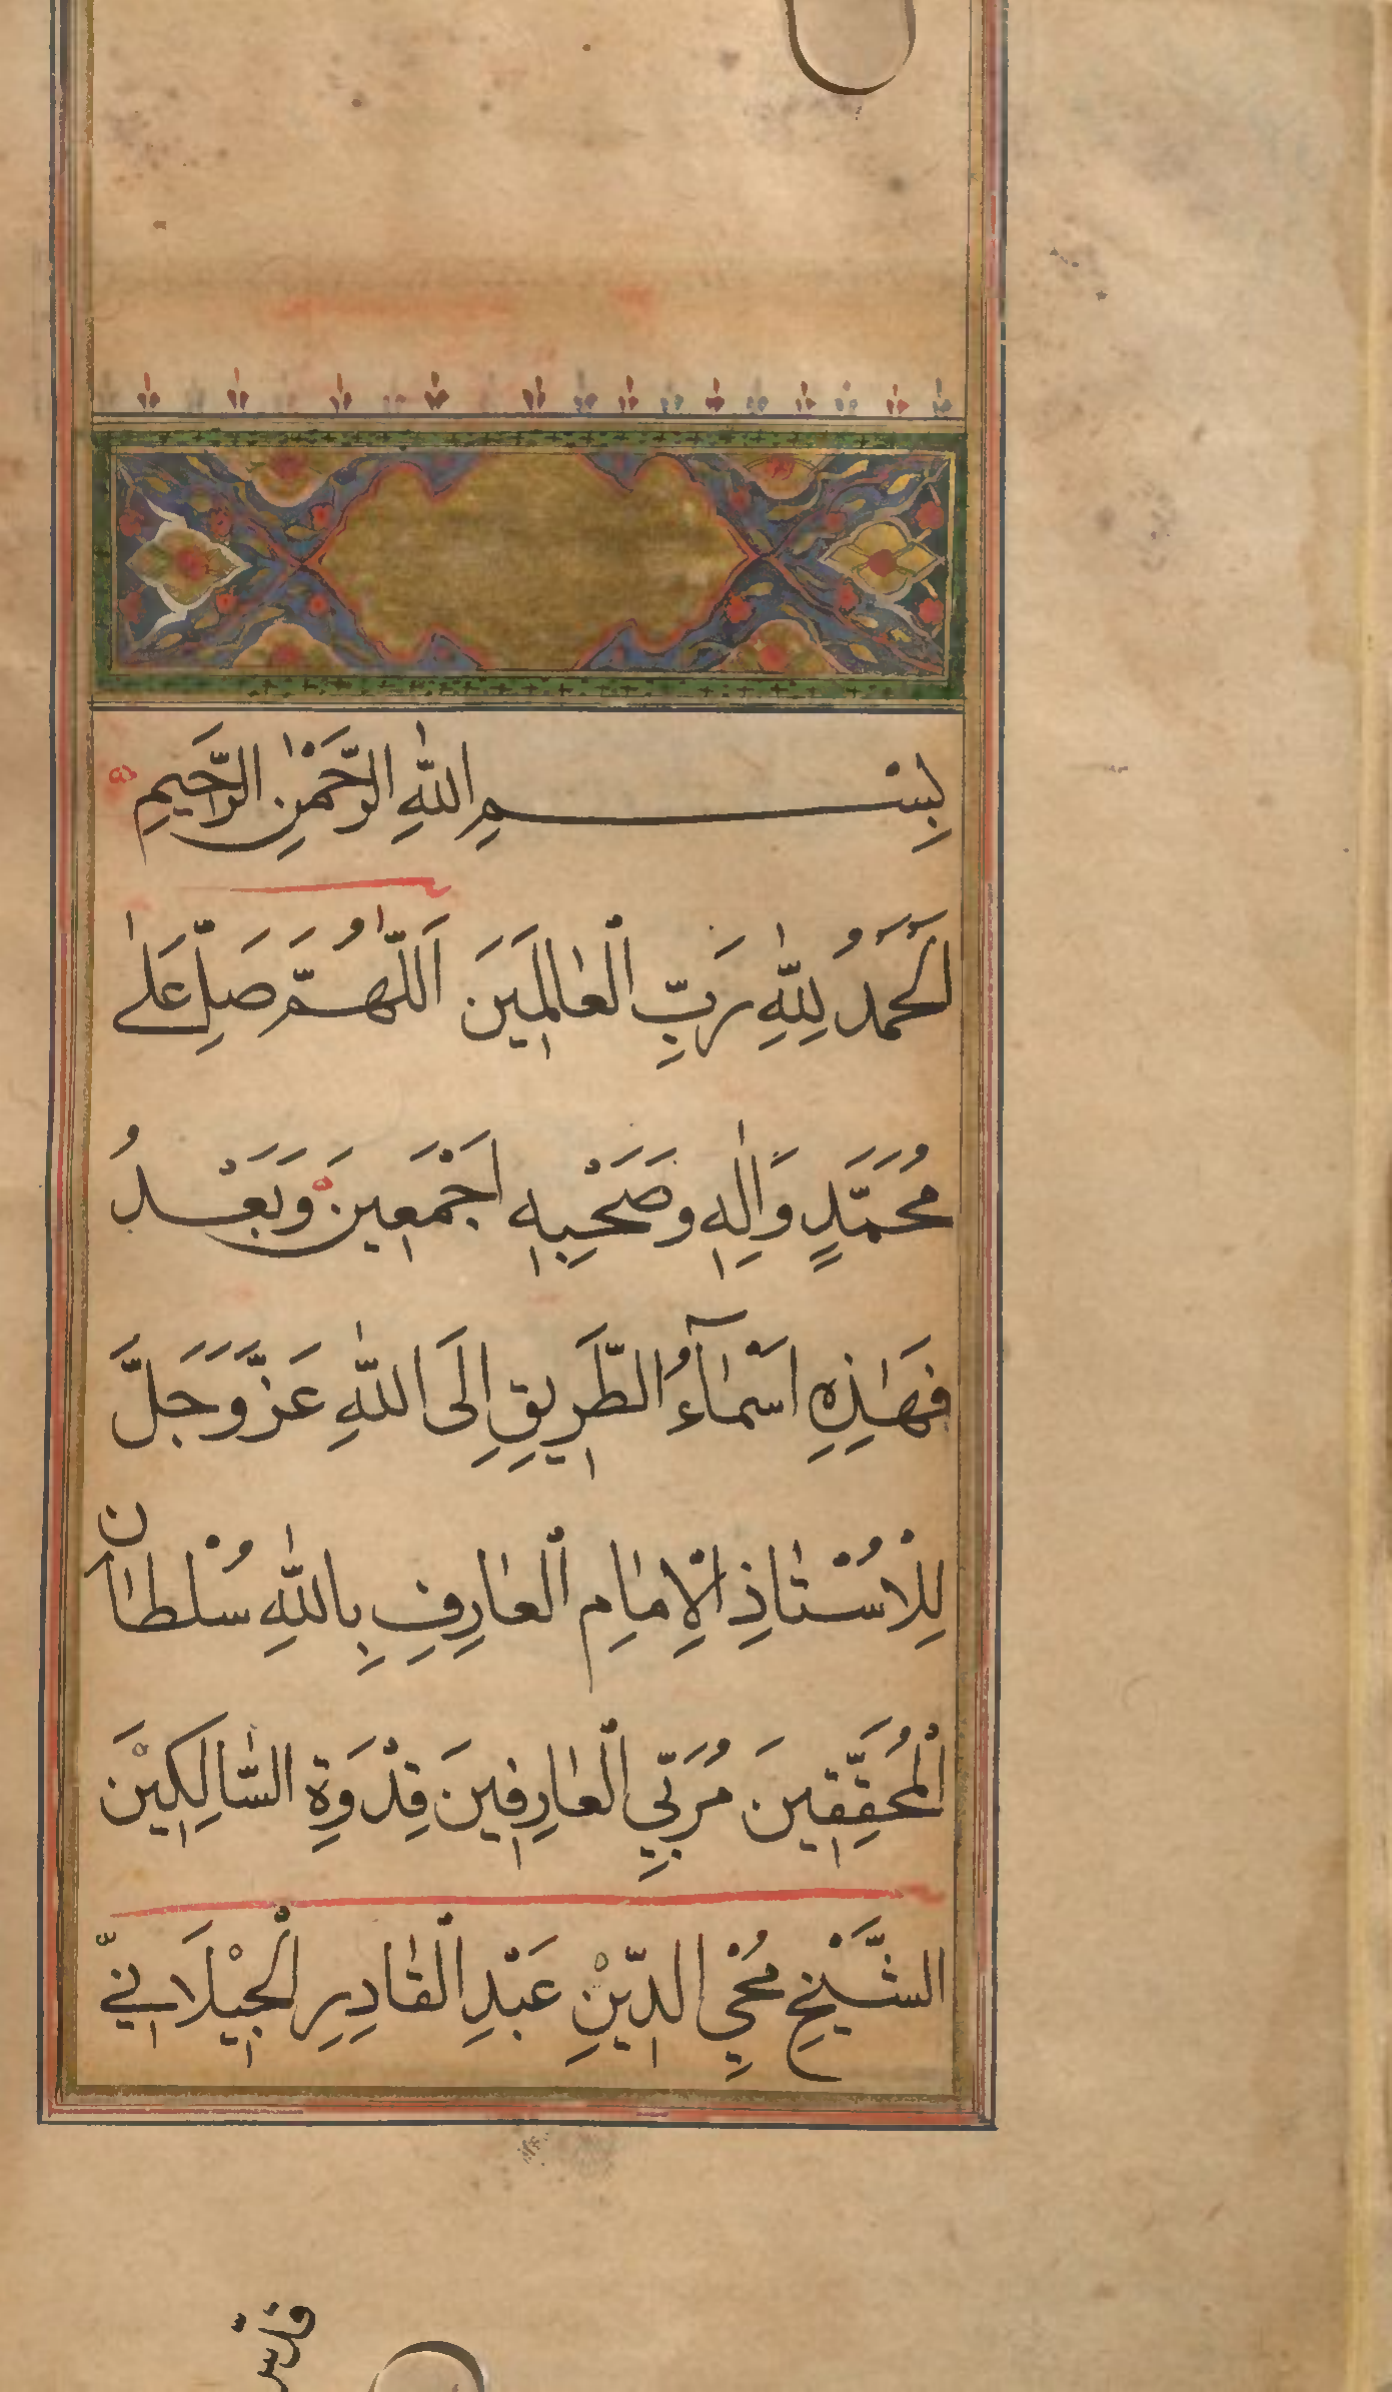 بِسْمِ اللّٰهِ الرَّحْمٰنِ الرَّحِيمِ
اَلْحَمْدُ لِلّٰهِ رَبِّ الْعَالَمِينَ اَللّٰهُمَّ صَلِّ عَلٰى
مُحَمَّدٍ وَاٰلِهِ وَصَحْبِهِ اَجْمَعِينَ وَبَعْدُ
فَهٰذِهِ اَسْمَآءُ الطَّرِيقِ اِلَى اللّٰهِ عَزَّ وَجَلَّ
لِلْاُسْتَاذِ الْاِمَامِ الْعَارِفِ بِاللّٰهِ سُلْطَانَ
الْمُحَقِّقِينَ مُرَبِّي الْعَارِفِينَ قِدْوَةِ السَّالِكِيْنَ
الشَّيْخِ مُحْيِ الدِّيْنِ عَبْدِ الْقَادِرِ الْجِيْلَانِيِّ